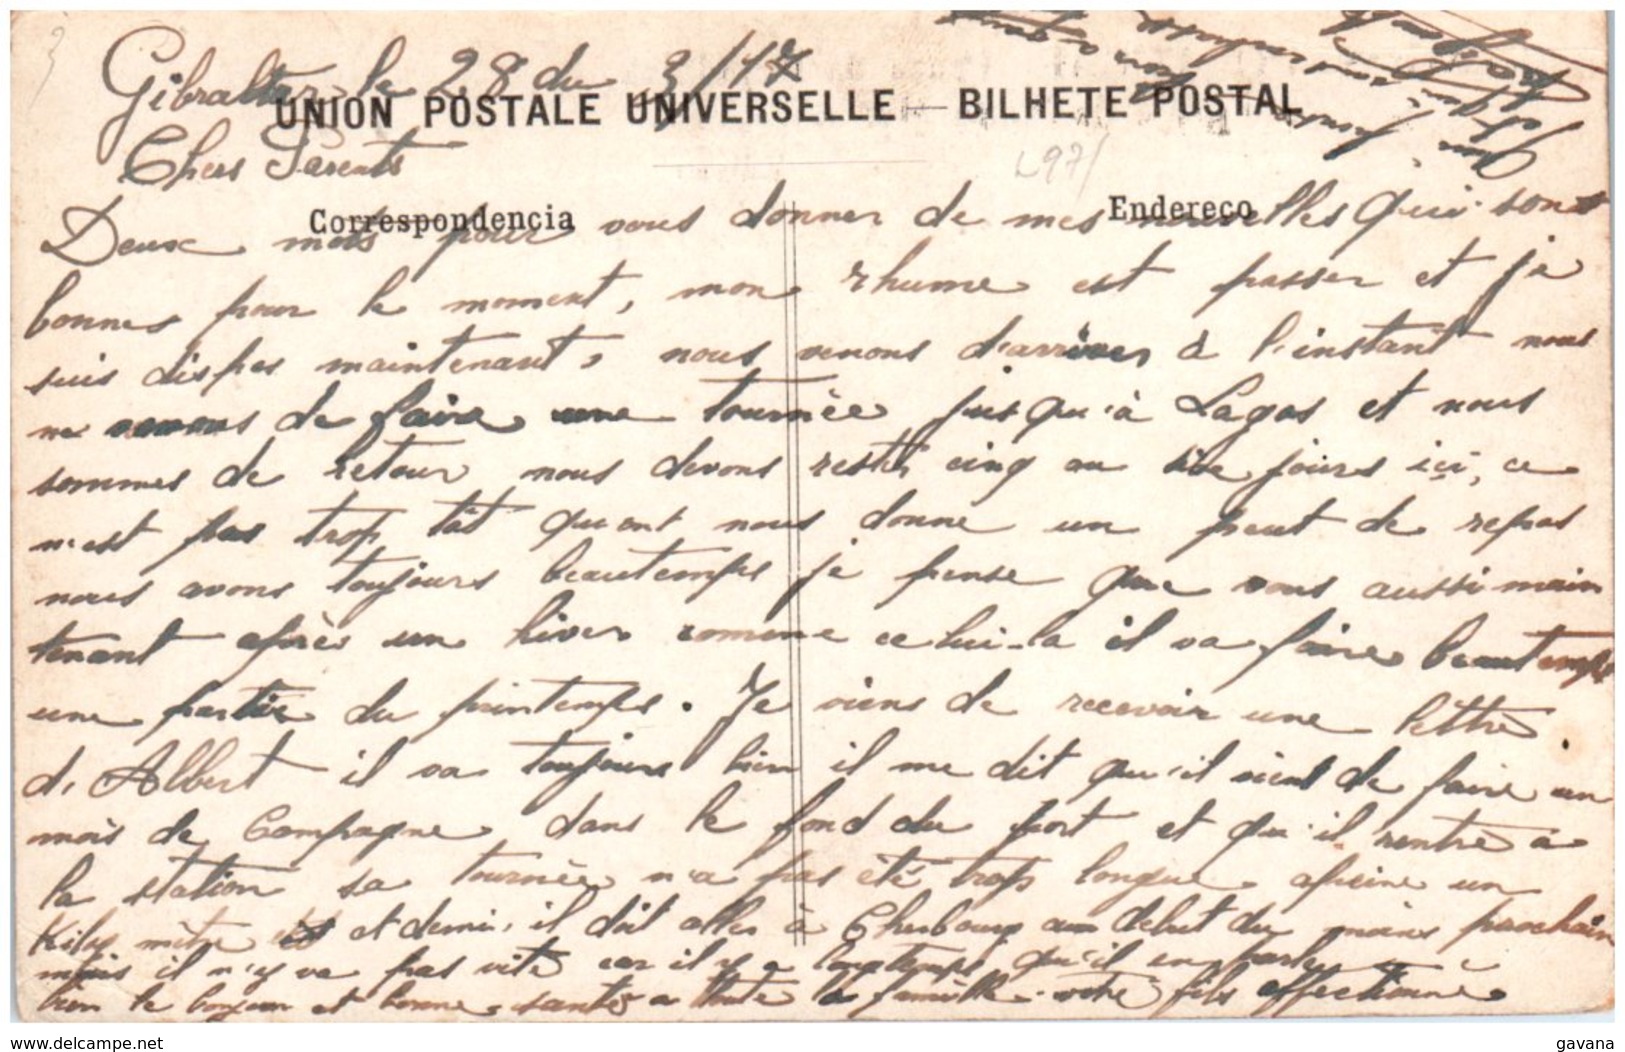 Gibraltar le 28 du 3/17
UNION POSTALE UNIVERSELLE — BILHETE POSTAL
Chers Parents
Correspondencia
Endereço
Deux mots pour vous donner de mes nouvelles qui sont
bonnes pour le moment, mon rhume est passer et je
suis dispos maintenant, nous venons d'arriver à l'instant nous
ne venons de faire une tournée jusqu'à Lagos et nous
sommes de retour nous devons rester cinq ou six jours içi, ce
n'est pas trop tât quant nous donne un peut de repos
nous avons toujours beautemps je pense que vous aussi main
tenant après un hiver comme celui-la il va faire beautemps
une partie du printemps. Je viens de recevoir une lettre
d'Albert il va toujours bien il me dit qu'il vient de faire un
mois de Campagne dans le fond du port et qu'il rentre à
la station sa tournée n'a pas été trop longue apeine un
Kilomètre et demi, il doit aller à Cherbourg au debut du mois prochain
mais il n'y va pas vite car il y a longtemps qu'il en parle
bien le bonjour et bonne santé a toute la famille votre fils affectionné
gavana
delcampe.net